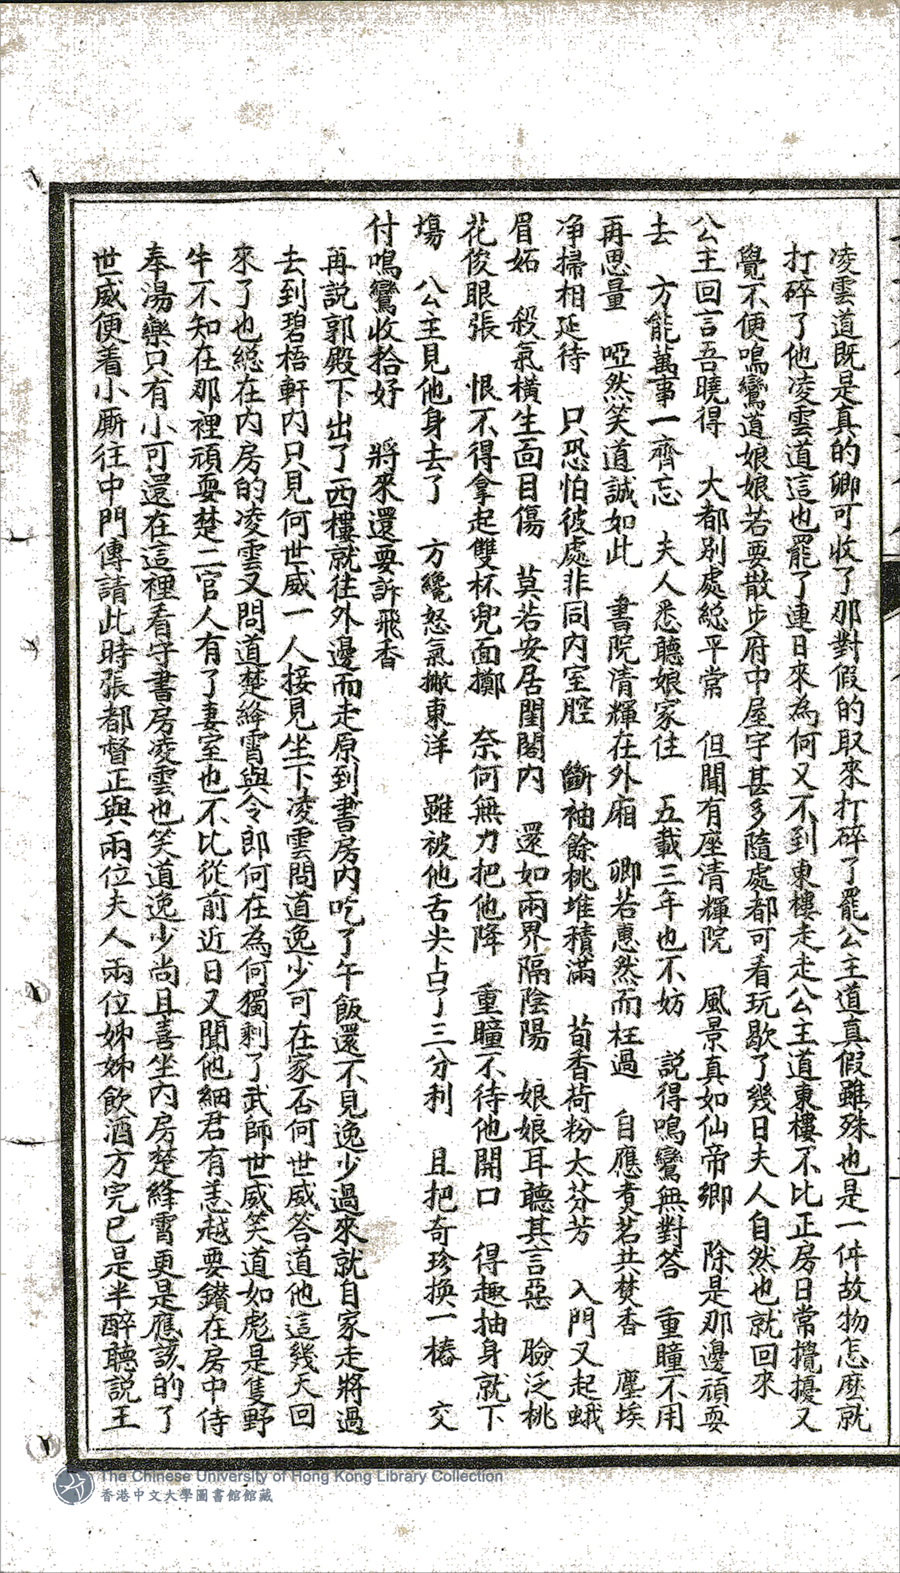 凌雲道既是真的卿可收了那對假的取來打碎了罷公主道真假雖殊也是一件故物怎麼就
打碎了他凌雲道這也罷了連日來為何又不到東樓走走公主道東樓不比正房日常攪擾又
覺不便鳴鸞道娘娘若要散步府中屋宇甚多隨處都可看玩歇了幾日夫人自然也就回來
公主回言吾曉得　大都別處総平常　但聞有座清輝院　風景真如仙帝鄉　除是那邊頑耍
去　方能萬事一齊忘　夫人悉聽娘家住　五載三年也不妨　説得鳴鸞無對答　重瞳不用
再思量　啞然笑道誠如此　書院清輝在外廂　卿若惠然而枉過　自應煑茗共焚香　塵埃
净掃相延待　只恐怕彼處非同内室腔　斷袖餘桃堆積滿　荀香荷粉太芬芳　入門又起蛾
眉妬　殺氣橫生面目傷　莫若安居閨閣内　還如兩界隔陰陽　娘娘耳聽其言惡　臉泛桃
花俊眼張　恨不得拿起雙杯兜面擲　奈何無力把他降　重瞳不待他開口　得趣抽身就下
塲　公主見他身去了　方纔怒氣撇東洋　雖被他舌尖占了三分利　且把奇珍換一樁　交
付鳴鸞收拾好　將來還要訴飛香
再説郭殿下出了西樓就往外邊而走原到書房内吃了午飯還不見逸少過來就自家走將過
去到碧梧軒内只見何世威一人接見坐下凌雲問道逸少可在家否何世威答道他這幾天回
來了也総在内房的凌雲又問道楚絳霄與令郎何在為何獨剩了武師世威笑道如彪是隻野
牛不知在那裡頑耍楚二官人有了妻室也不比從前近日又聞他細君有恙越要鑚在房中侍
奉湯藥只有小可還在這裡看守書房凌雲也笑道逸少尚且喜坐内房楚絳霄更是應該的了
世威便着小厮往中門傳請此時張都督正與兩位夫人兩位姊姊飲酒方完已是半醉聽説王
The Chinese University of Hong Kong Library Collection
香港中文大學圖書館館藏